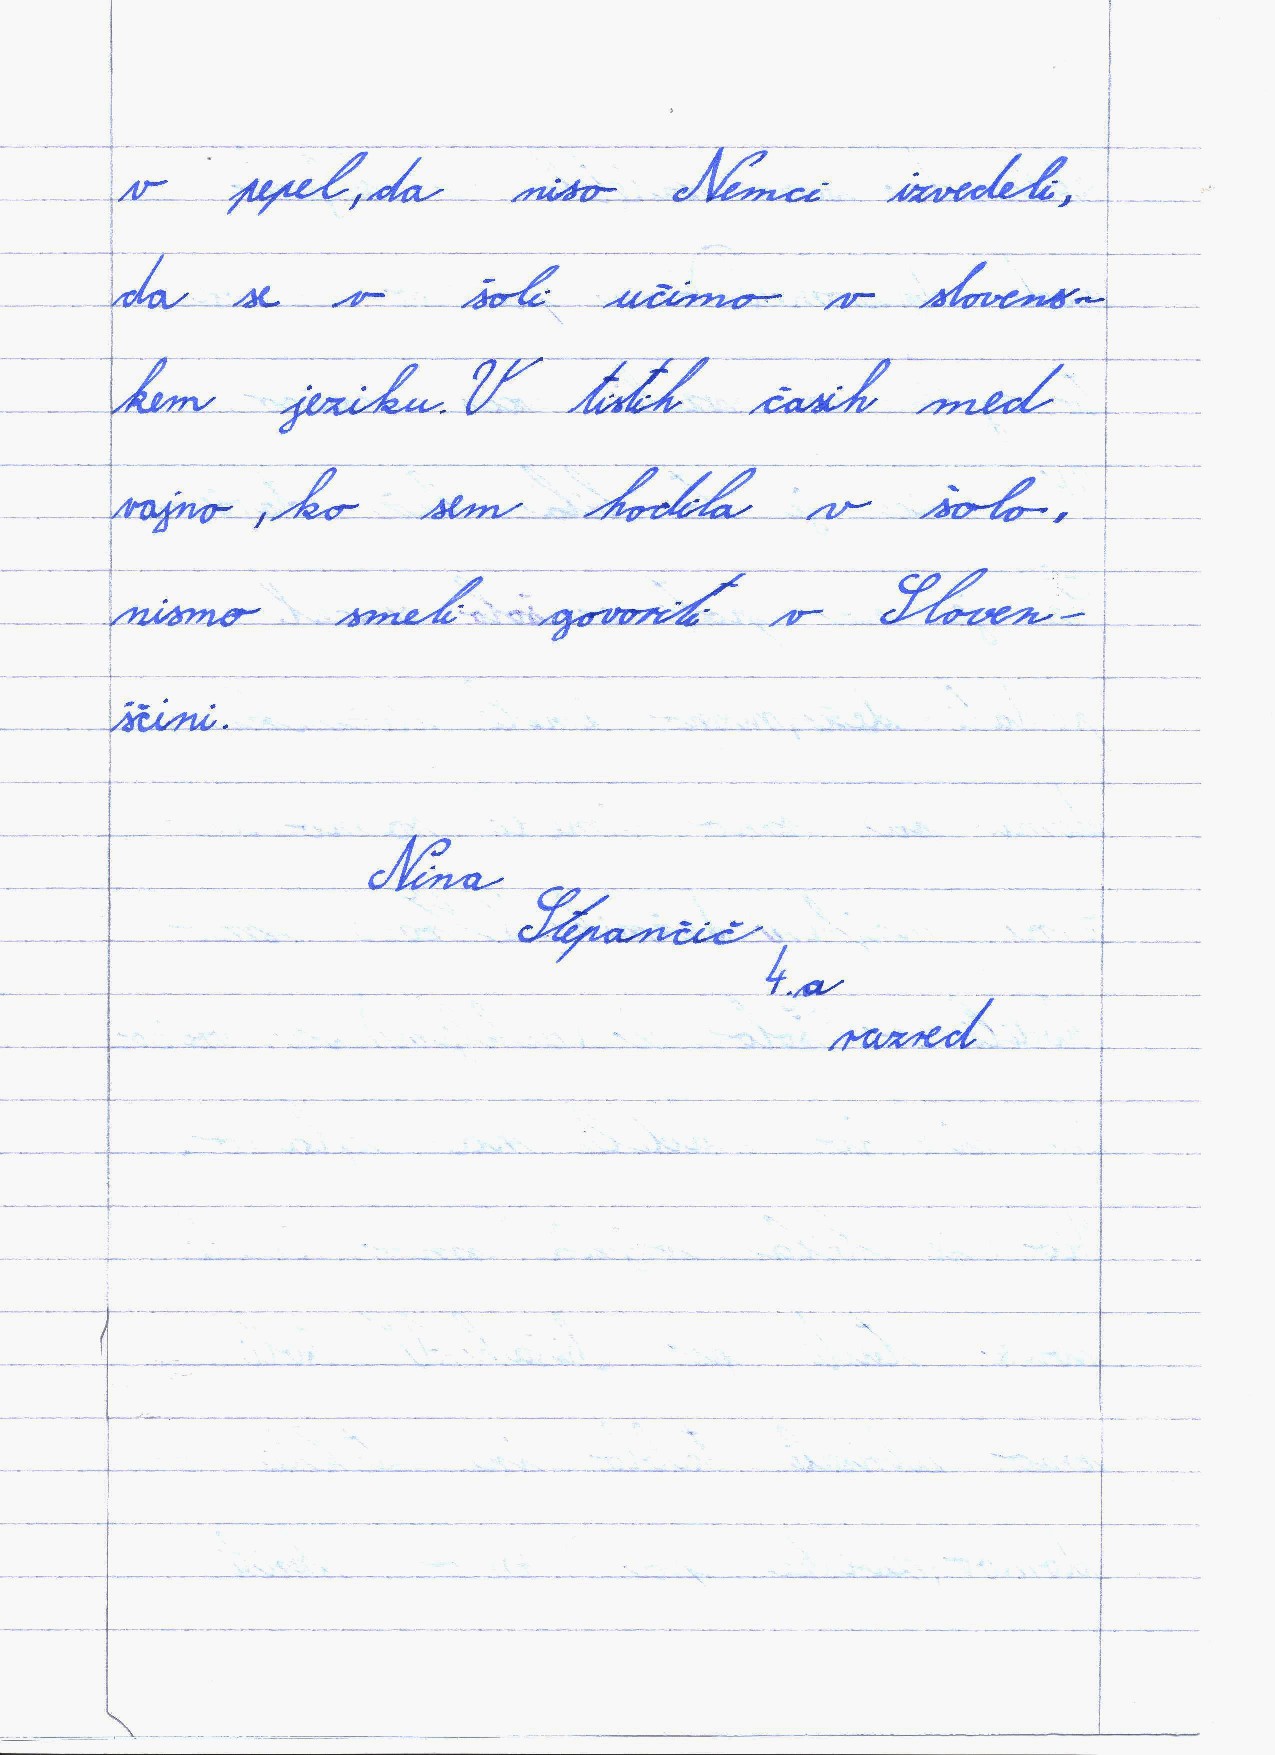 v pepel, da niso Nemci izvedeli,
da se v šoli učimo v slovens-
kem jeziku. V tistih časih med
vajno, ko sem hodila v šolo,
nismo smeli govoriti v Sloven-
ščini.
Nina
Stepančič
4.a
razred